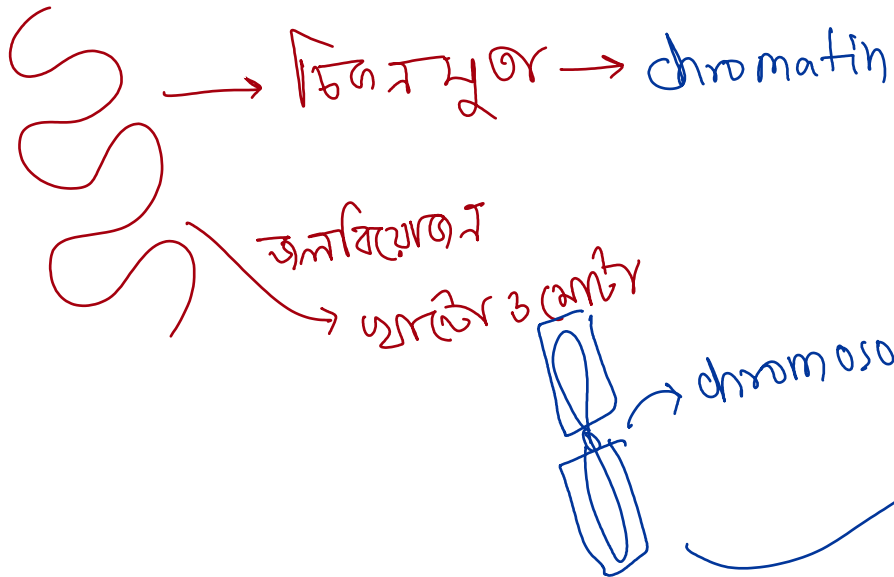 চিকন সুতা → chromatin
জলবিয়োজন
খাটো ও মোটা
chromoso